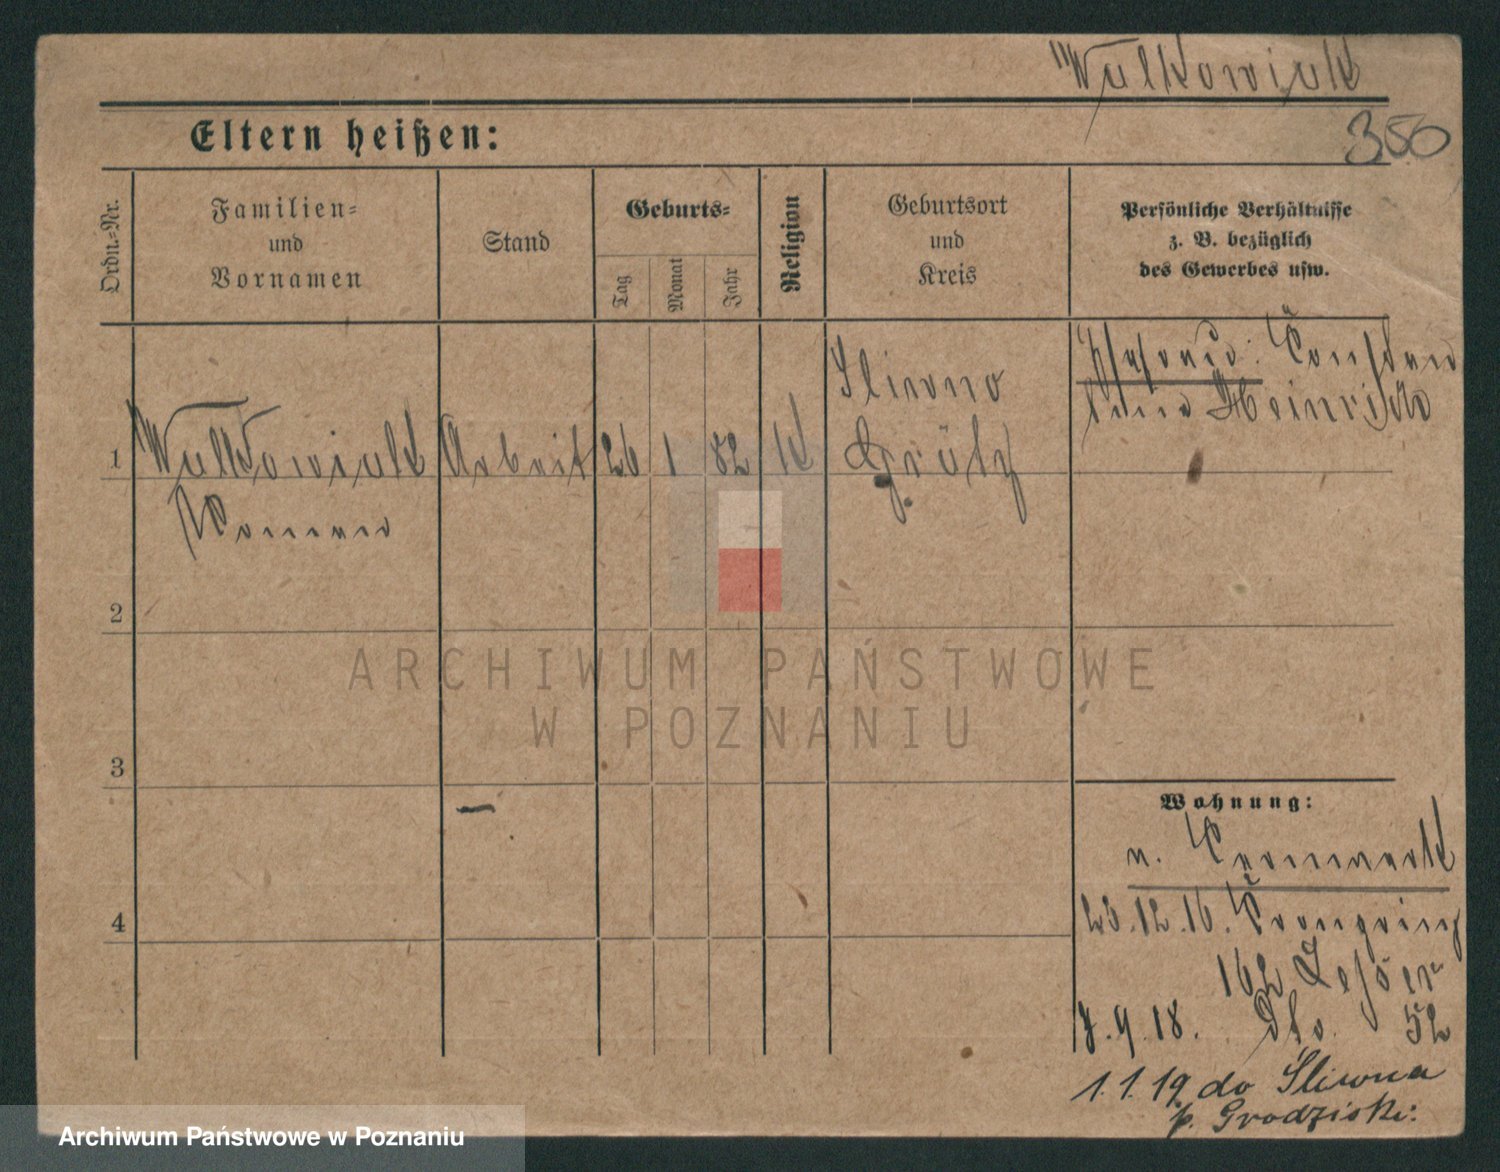 Walkowiak
350
Eltern heißen:
Ordn.-Nr.
Familien-
und
Vornamen
Stand
Geburts-
Tag
Monat
Jahr
Religion
Geburtsort
und
Kreis
Persönliche Verhältnisse
z. B. bezüglich
des Gewerbes usw.
1
Walkowiak
Roman
Arbeit
26
1
82
K
Sliwno
Grätz
Heinrich
2
3
4
Wohnung:
v.
23.12.16.
162
7.9.18. dto. 52
1.1.19 do Śliwna
p. Grodziski:
ARCHIWUM PAŃSTWOWE
W POZNANIU
Archiwum Państwowe w Poznaniu